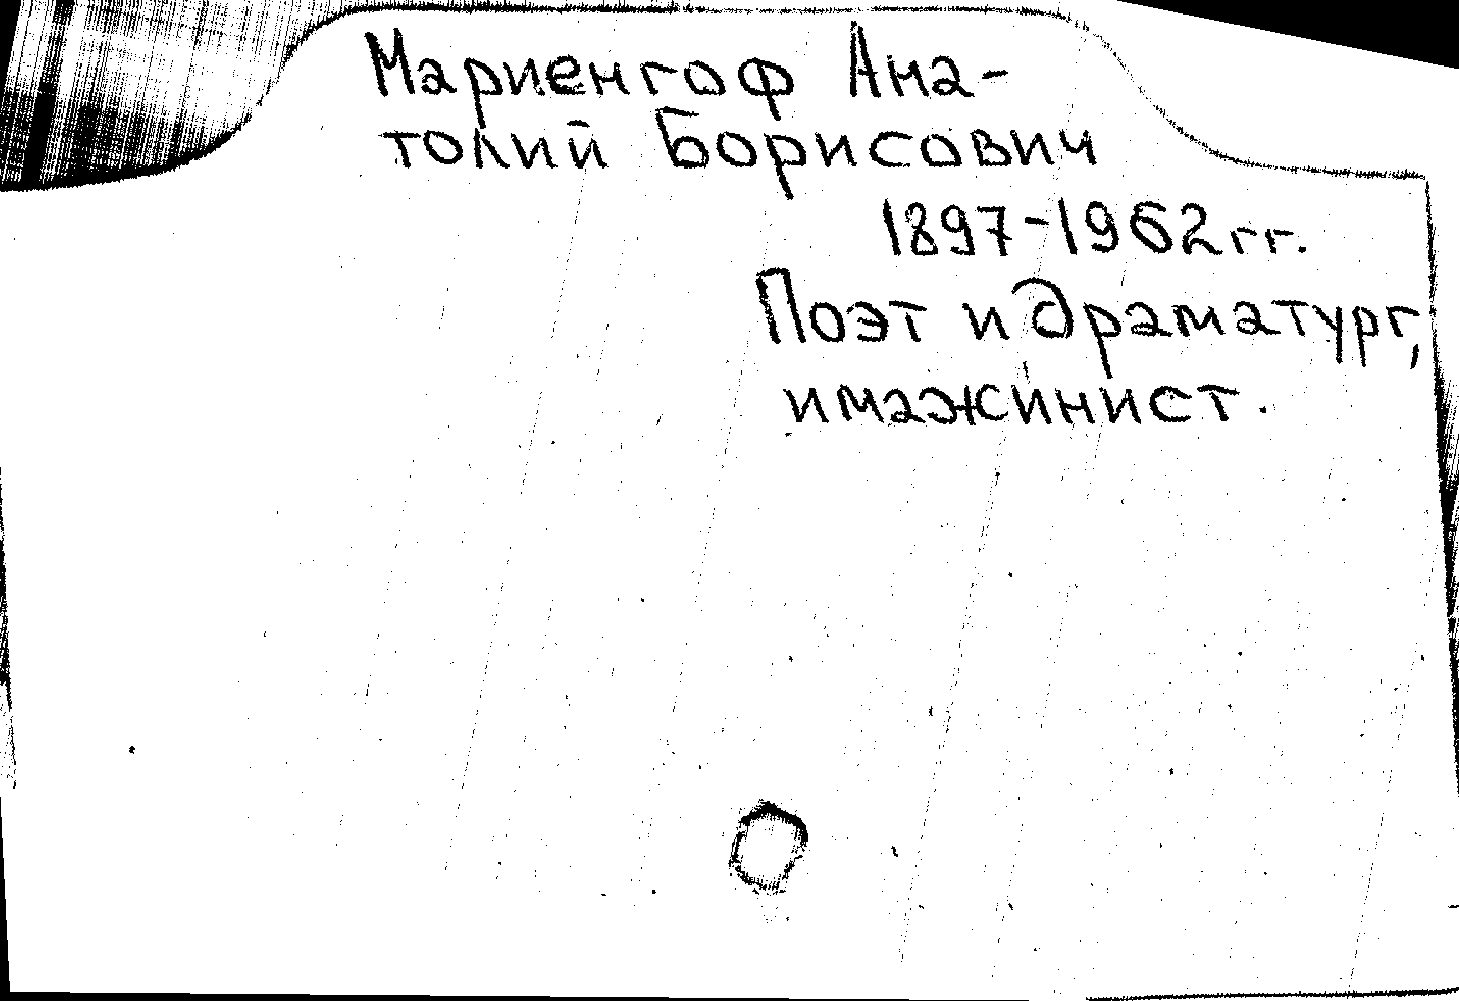 Мариенгоф Ана-
толий Борисович
1897-1962 гг.
Поэт и драматург,
имажинист.